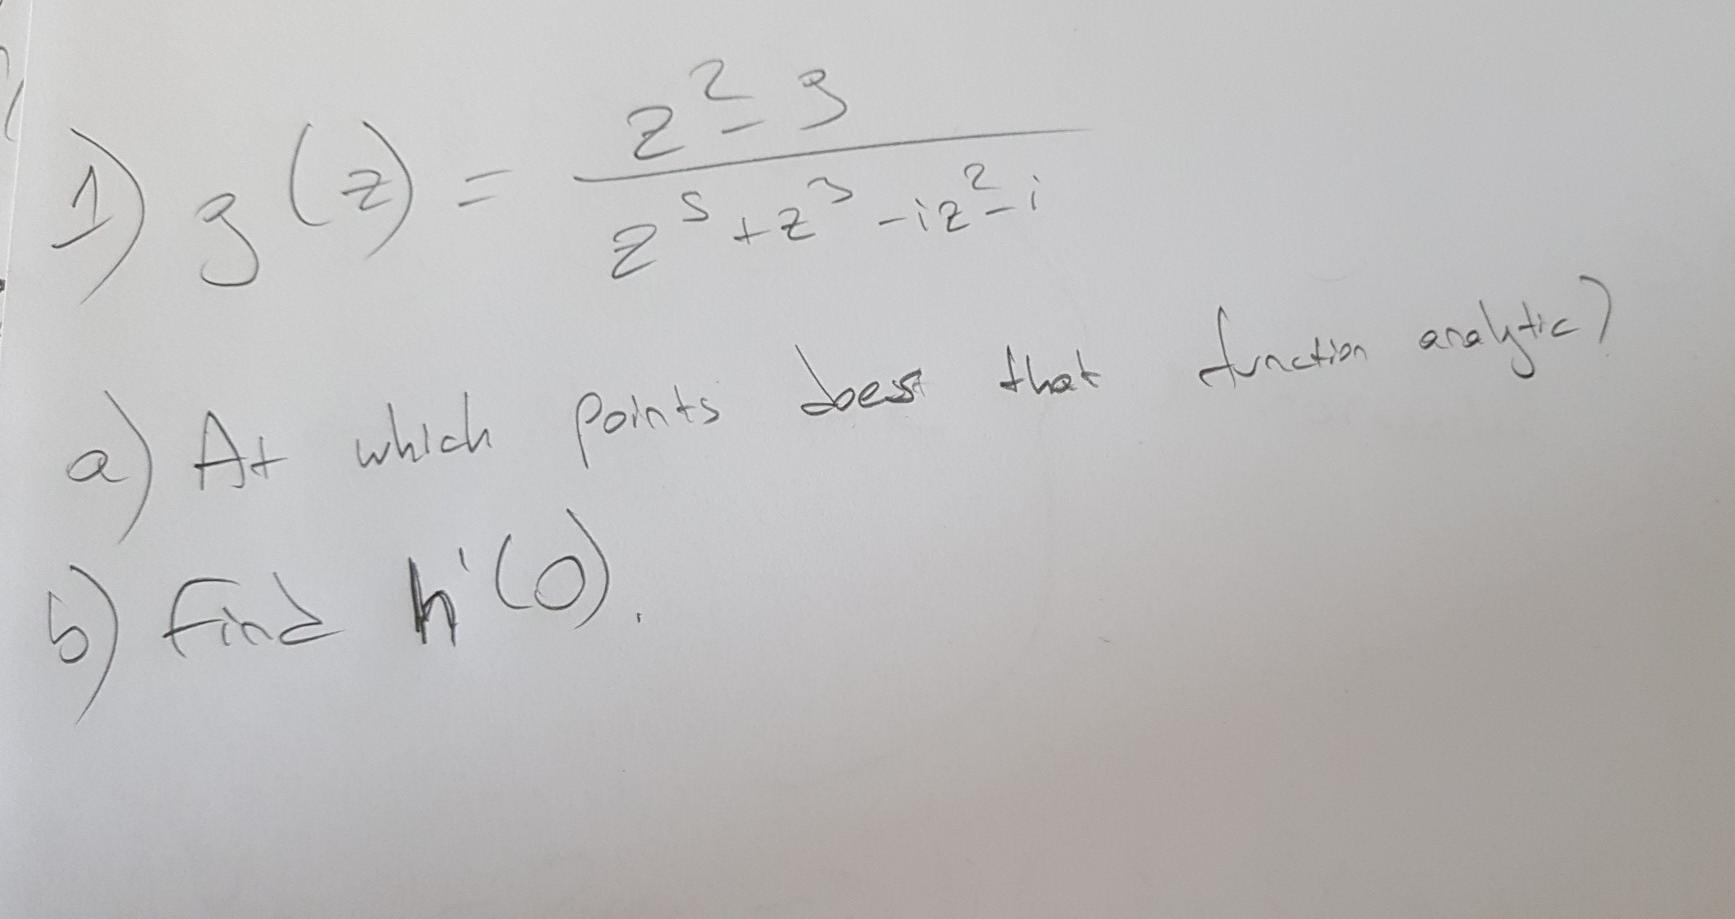 1) g(z) = z² - 9 / z⁵ + z³ - iz² - i
a) At which points does that function analytic?
b) Find h'(0).